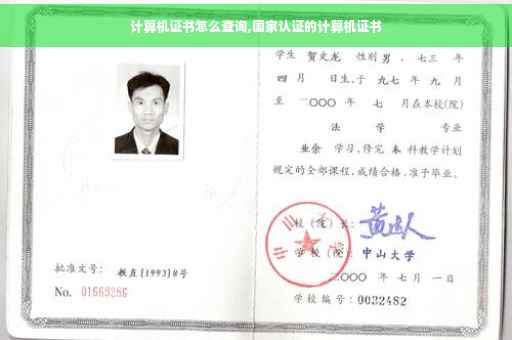 计算机证书怎么查询,国家认证的计算机证书
学生 贺文龙 性别 男 、七三 年
四 月 日生,于 九七 年 九 月
至 二〇〇〇 年 七 月在本校(院)
法 学 专业
业余 学习,修完 本 科教学计划
规定的全部课程,成绩合格,准予毕业。
校(院)长:
学 校(院): 中山大学
二〇〇〇 年 七 月 一 日
学校编号: 0032482
批准文号: 教直[1993]8号
No. 01669286